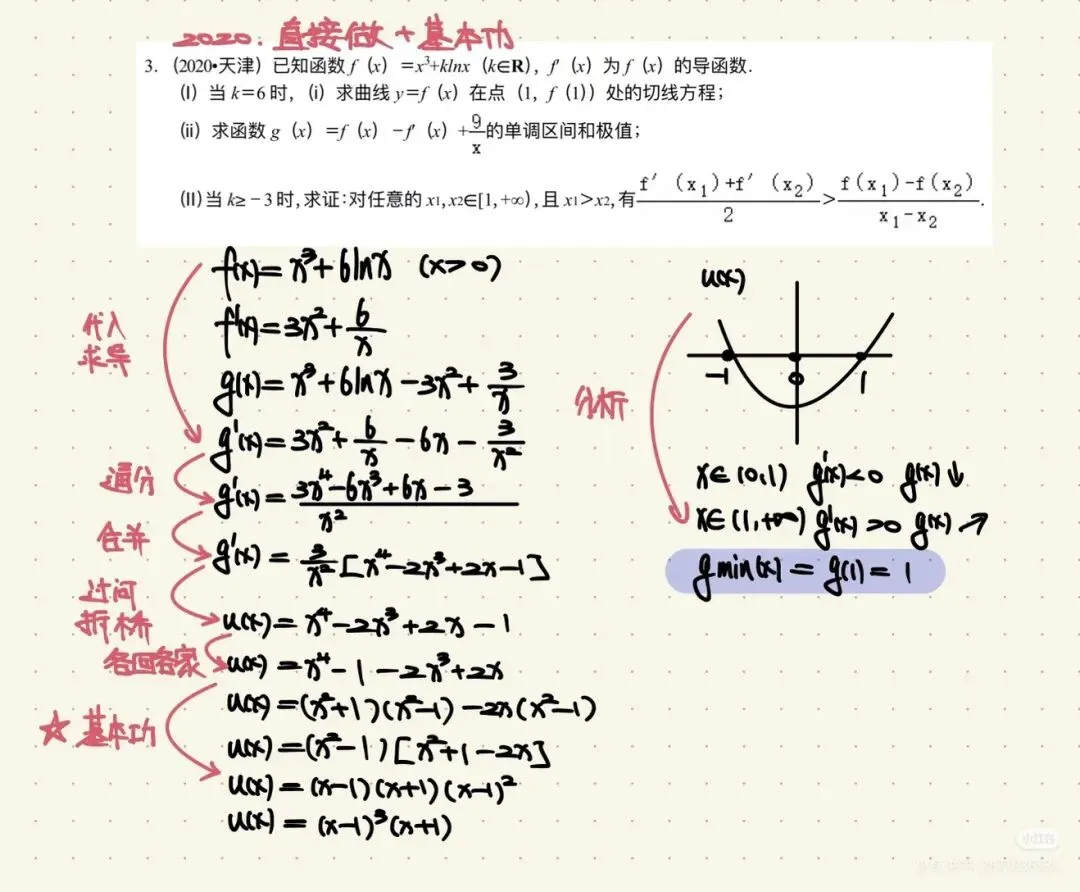 2020. 直接做 + 基本功
3. (2020•天津) 已知函数 f (x) =x³+klnx (k∈R), f′ (x) 为 f (x) 的导函数.
(Ⅰ) 当 k=6 时, (i) 求曲线 y=f (x) 在点 (1, f (1)) 处的切线方程;
(ii) 求函数 g (x) =f (x) -f′ (x) +9/x的单调区间和极值;
(II)当 k≥-3 时, 求证:对任意的 x₁,x₂∈[1,+∞), 且 x₁>x₂, 有 f′ (x₁)+f′ (x₂)/2 > f(x₁)-f(x₂)/x₁-x₂.
代入
求导
f(x)= x³+6lnx (x>0)
f'(x)=3x²+6/x
g(x)= x³+6lnx-3x²+3/x
g'(x)=3x²+6/x-6x-3/x²
通分
g'(x)=3x⁴-6x³+6x-3/x²
合并
g'(x)=3/x²[x⁴-2x³+2x-1]
过河
拆桥
u(x)=x⁴-2x³+2x-1
各回各家
u(x)=x⁴-1-2x³+2x
☆ 基本功
u(x)=(x²+1)(x²-1)-2x(x²-1)
u(x)=(x²-1)[x²+1-2x]
u(x)=(x-1)(x+1)(x-1)²
u(x)=(x-1)³(x+1)
u(x)
-1 0 1
分析
x∈(0,1) g'(x)<0 g(x)↓
x∈(1,+∞) g'(x)>0 g(x)↗
gmin(x)=g(1)=1
小红书